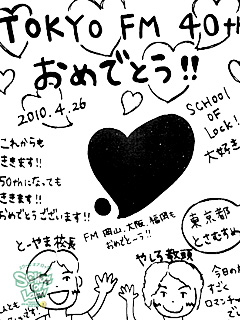 TOKYO FM 40th
おめでとう!!
2010.4.26
SCHOOL
OF
LOCK!
大好き
これからも
ききます!!
50thになっても
ききます!!
おめでとうございます!!
FM 岡山、大阪、福岡も
おめでとーう!!
とーやま校長
やしろ教頭
東京都
ときむすめ
今日の
すごく
ロマンチ